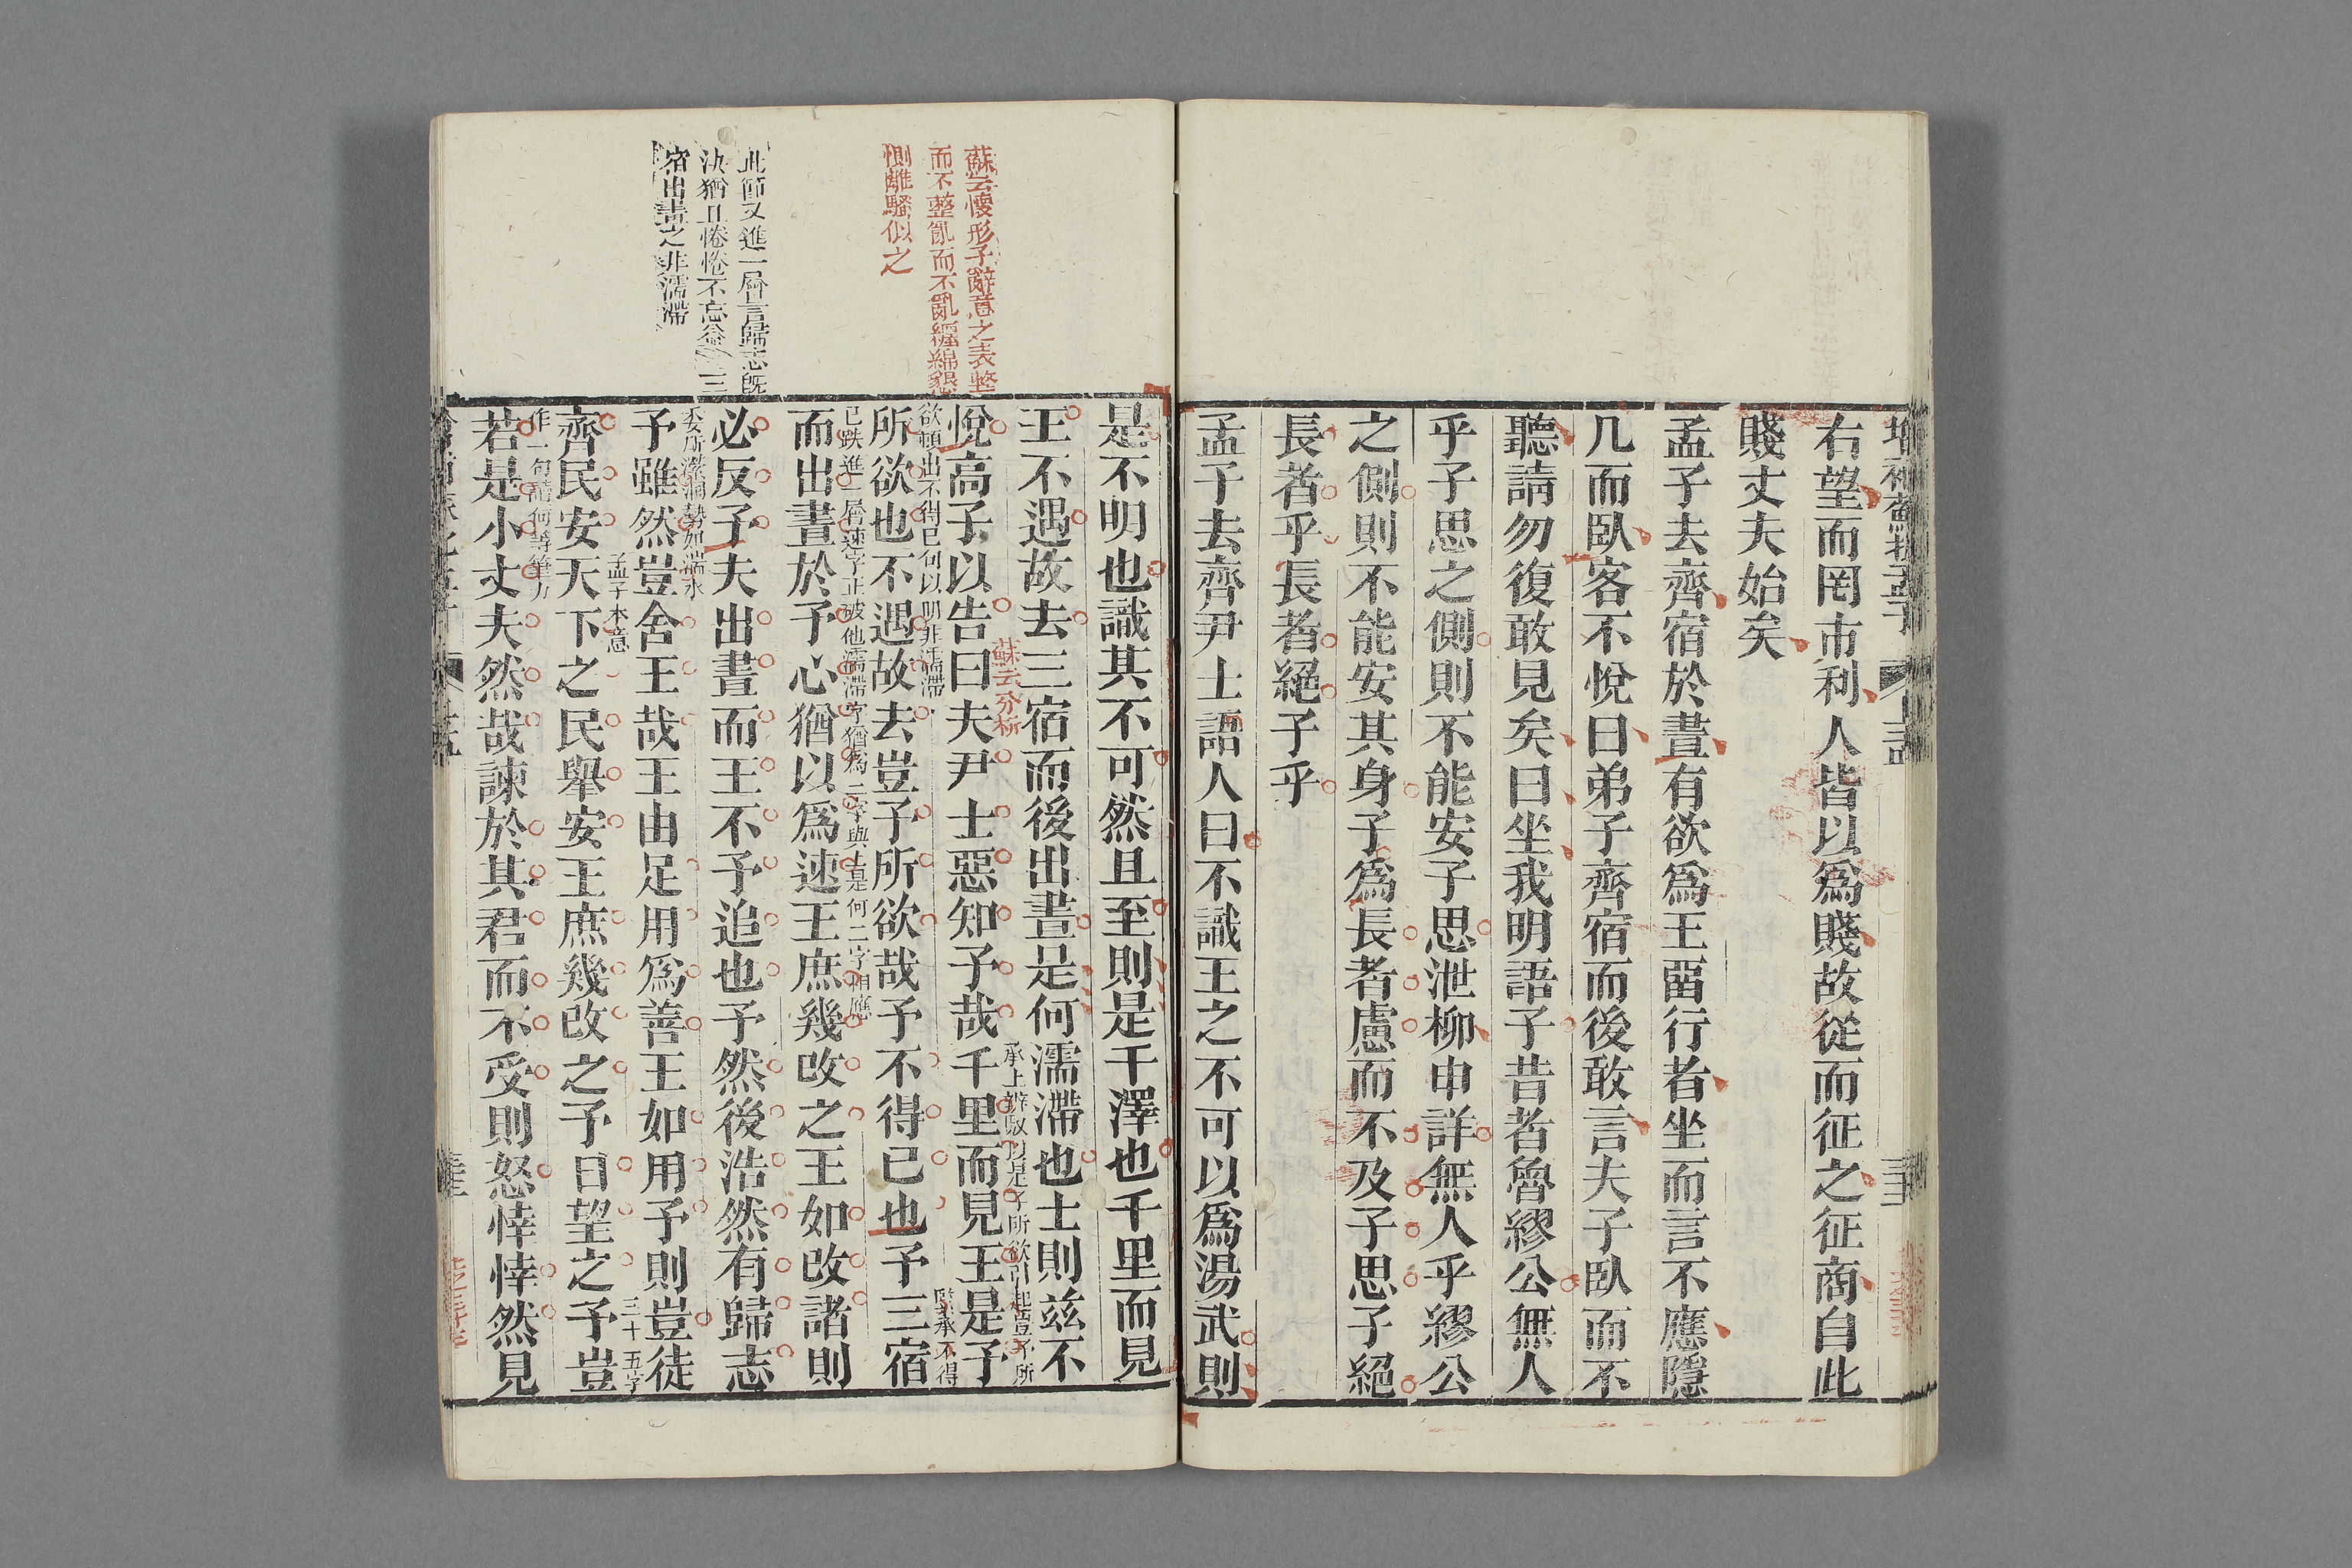 右望而罔市利人皆以爲賤故從而征之征商自此
賤丈夫始矣
孟子去齊宿於晝有欲爲王畱行者坐而言不應隱
几而臥客不悅曰弟子齊宿而後敢言夫子臥而不
聽請勿復敢見矣曰坐我明語子昔者魯繆公無人
乎子思之側則不能安子思泄柳申詳無人乎繆公
之側則不能安其身子爲長者慮而不及子思子絕
長者乎長者絕子乎
孟子去齊尹士語人曰不識王之不可以爲湯武則
蘇云懷形于辭意之表整
而不整亂而不亂纏綿懇
惻離騷似之
此節又進一層言歸志既
決猶且惓惓不忘益
宿出晝之非濡滯
是不明也識其不可然且至則是干澤也千里而見
王不遇故去三宿而後出晝是何濡滯也士則茲不
蘇云分析
悅高子以告曰夫尹士惡知予哉千里而見王是予
欲頓出不得已何以明非濡滯
所欲也不遇故去豈予所欲哉予不得已也予三宿
緊承不得
已跌進一層速字正破他濡滯字猶爲二字與士是何二字相應
而出晝於予心猶以爲速王庶幾改之王如改諸則
必反予夫出晝而王不予追也予然後浩然有歸志
予雖然豈舍王哉王由足用爲善王如用予則豈徒
孟子本意
三十五字
齊民安天下之民舉安王庶幾改之予日望之予豈
作一句讀何等筆力
若是小丈夫然哉諫於其君而不受則怒悻悻然見